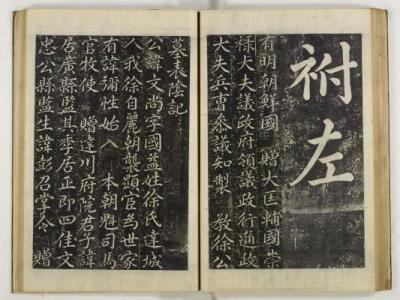 祔左
有明朝鮮國 贈大匡輔國崇
祿大夫議政府領議政行通政
大夫兵曹叅議知製 敎徐公
墓表陰記
公諱文尚字國益姓徐氏達城
人我徐自麗朝襲顯官為世家
有諱彌性始入 本朝魁司馬
官牧使 贈達川府院君子諱
居廣縣監其季居正即四佳文
忠公縣監生諱彭召掌令 贈